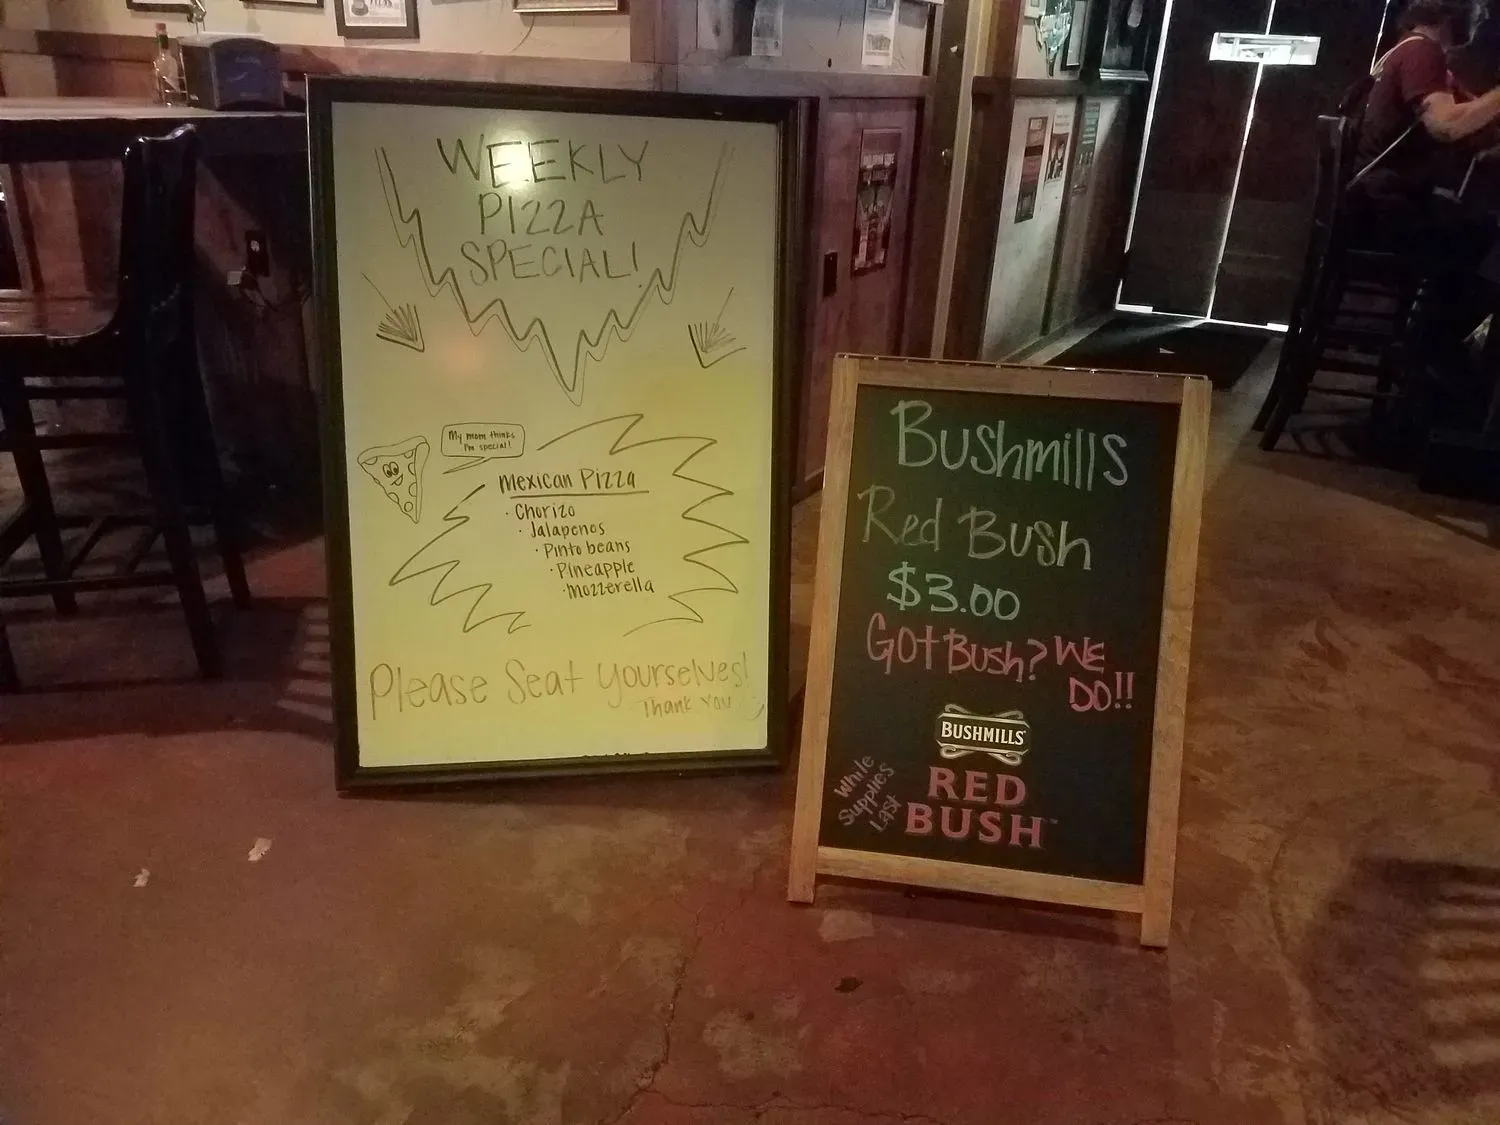 WEEKLY
PIZZA
SPECIAL!
My mom thinks
I'm special!
Mexican Pizza
· Chorizo
· Jalapenos
· Pinto beans
· Pineapple
· Mozzerella
Please Seat Yourselves!
Thank You
Bushmills
Red Bush
$3.00
Got Bush? WE
DO!!
BUSHMILLS
RED
BUSH
While
Supplies
Last